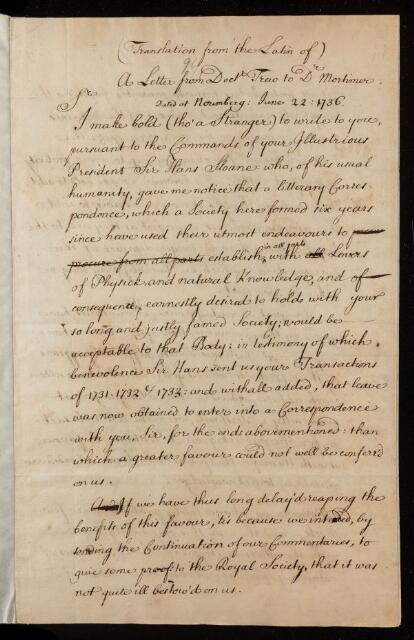 (Translation from the Latin of)
A Letter from Doctr Trew to Dr Mortimer.
Sr
Dated at Norimberg: June 22: 1736.
I make bold (tho' a Stranger) to write to you,
pursuant to the Commands of your Illustrious
President Sir Hans Sloane who, of his usual
humanity, gave me notice that a litterary Corres-
pondence, which a Society here formed six years
since have used their utmost endeavours to
procure from all parts establish, in all parts with all Lovers
of Physick and natural Knowledge, and of
consequence, earnestly desired to hold with your
so long and justly famed Society; would be
acceptable to that Body: in testimony of which
benevolence Sir Hans sent us your Transactions
of 1731. 1732 & 1733: and withall added, that leave
was now obtained to enter into a Correspondence
with you, Sir, for the ends abovementioned: than
which a greater favour could not well be conferr'd
on us.
And If we have thus long delay'd reaping the
benefits of this favour, 'tis because we intended, by
sending the Continuation of our Commentaries, to
give some proof to the Royal Society, that it was
not quite ill bestow'd on us.